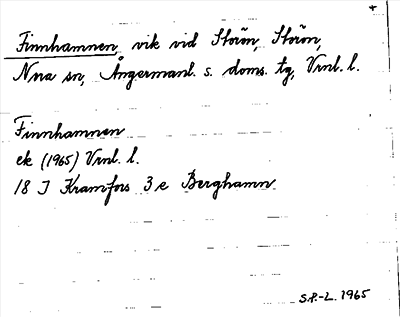 Finnhamnen, vik vid Storön, Storön,
Nora sn, Ångermanl. s. doms. tg, Vrnl. l.
Finnhamnen
ek (1965) Vrnl. l.
18 I Kramfors 3 e Berghamn
S.P.-L. 1965